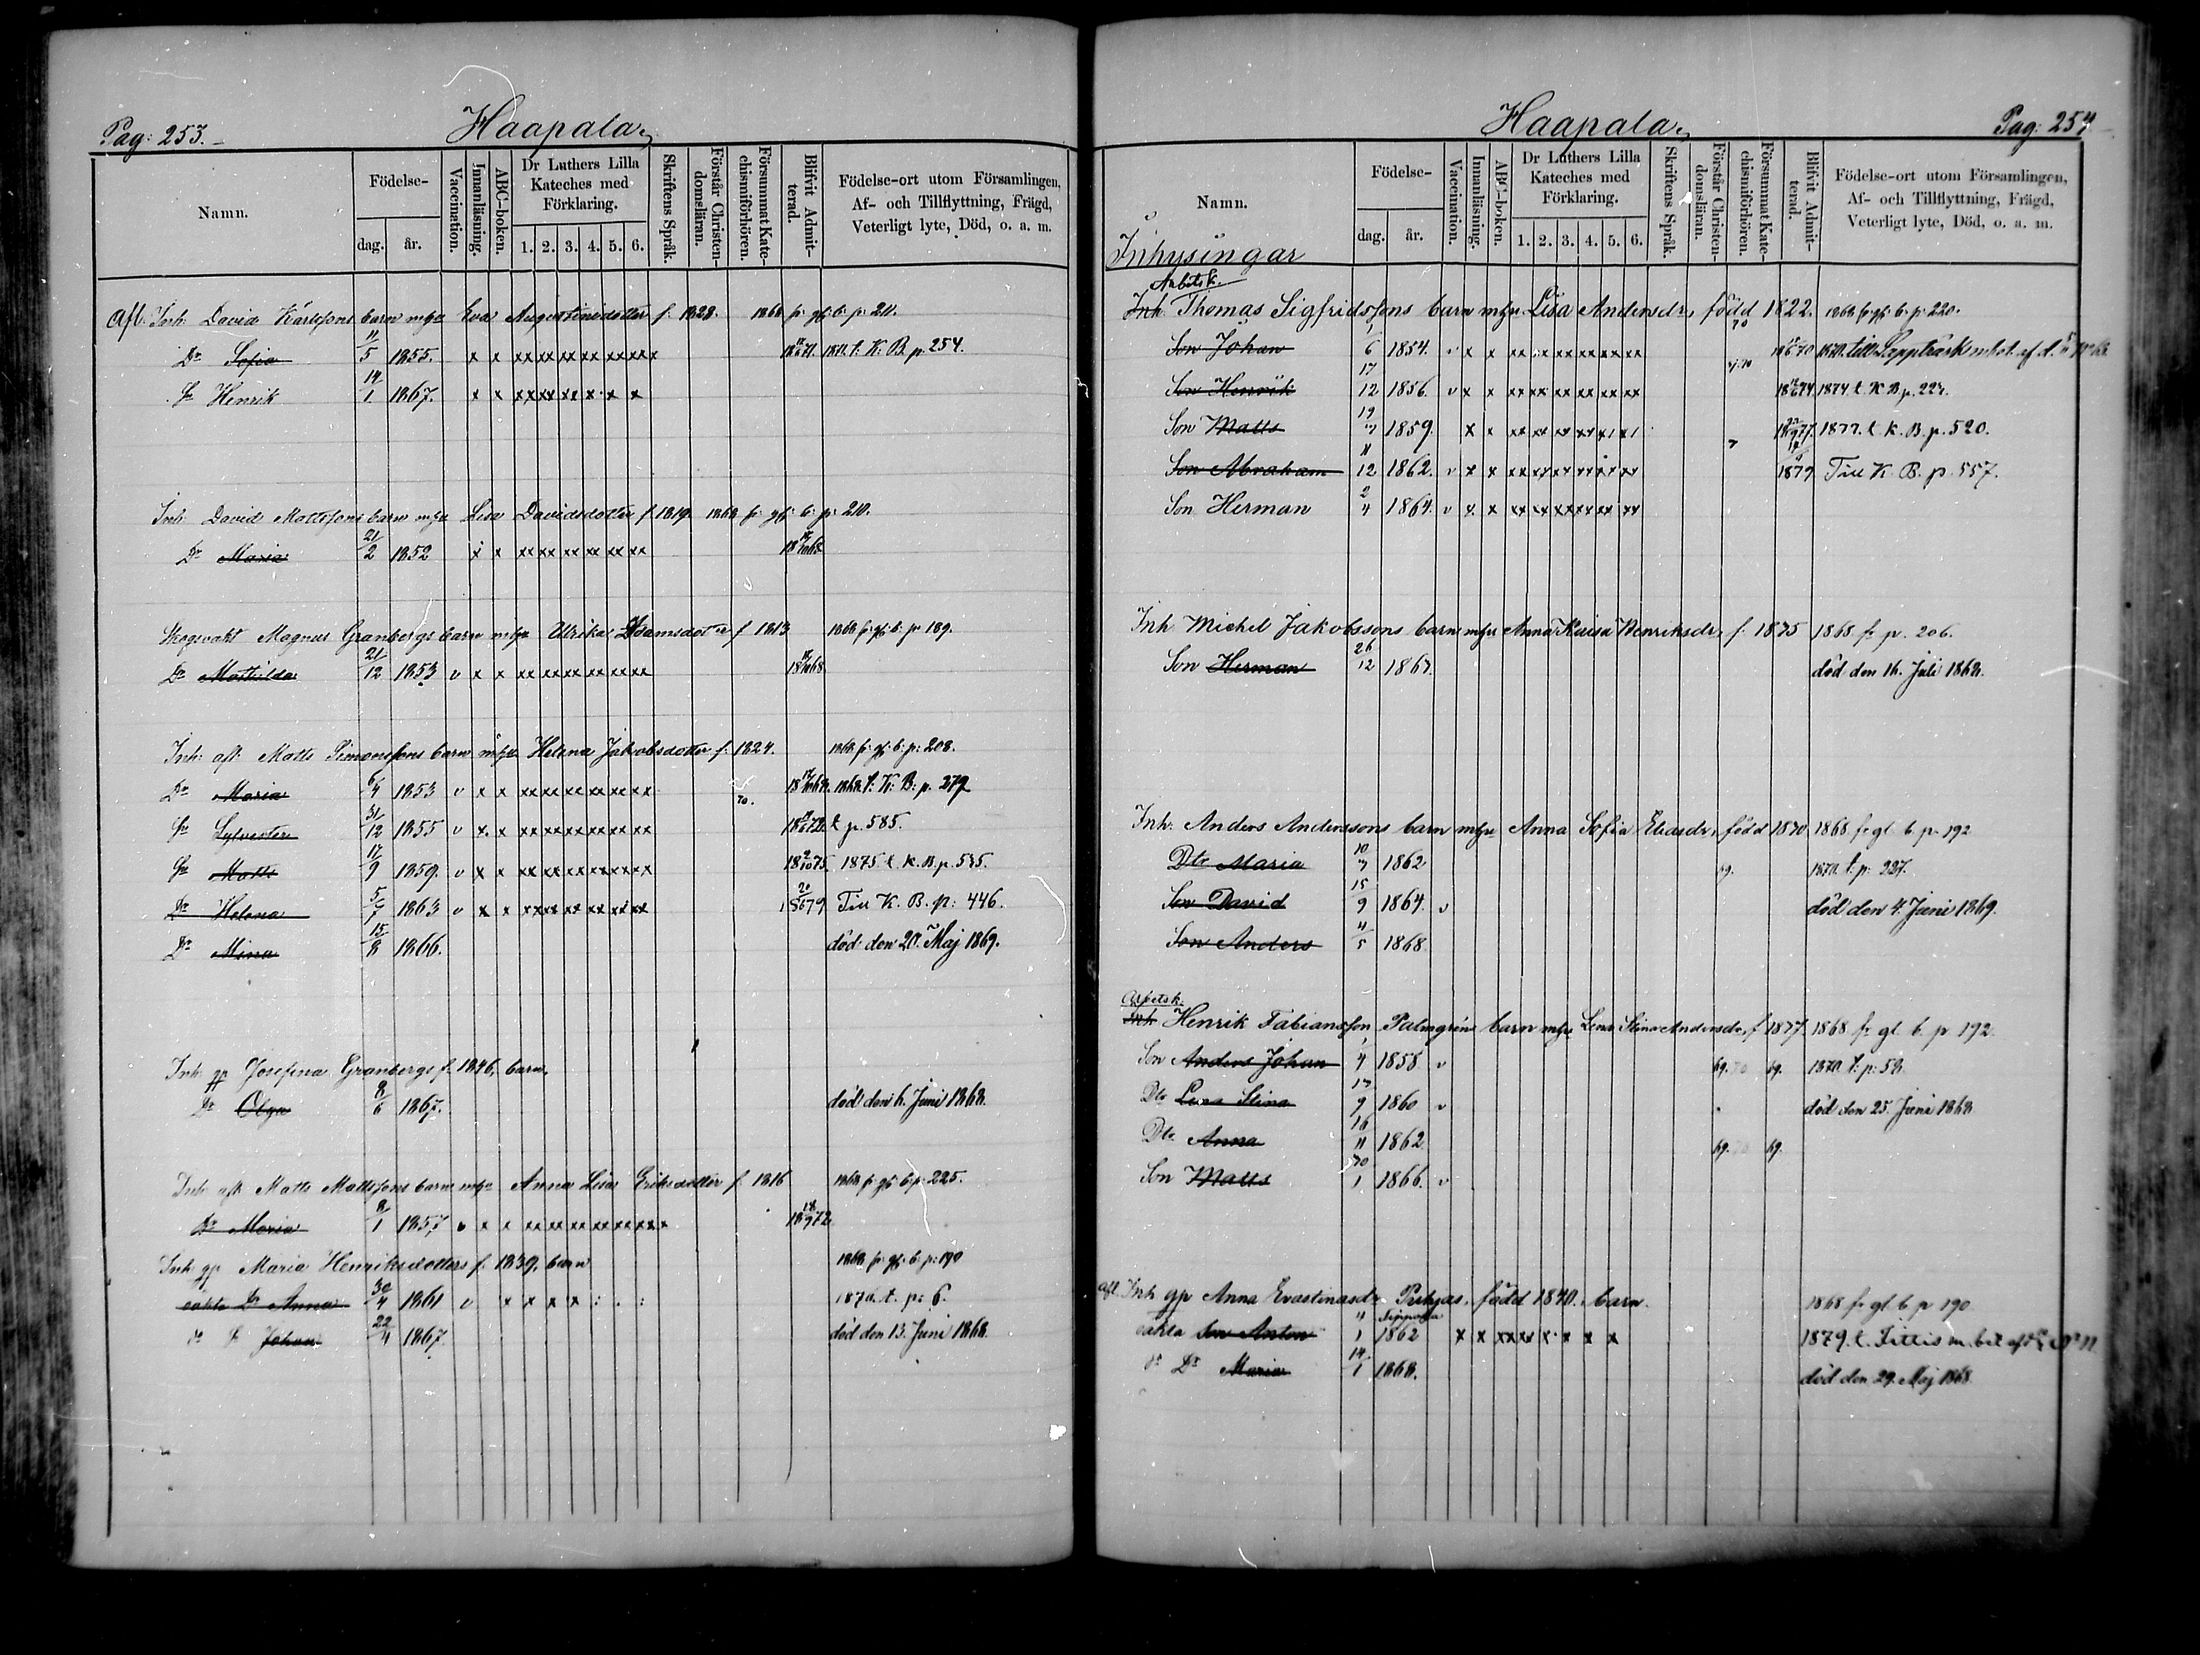 Pag: 253.
Haapala.
Namn.
Födelse-
dag.
år.
Vaccination.
Innanläsning.
ABC-boken.
Dr Luthers Lilla
Kateches med
Förklaring.
1. 2. 3. 4. 5. 6.
Skriftens Språk.
Förstår Christen-
domsläran.
Försummat Kate-
chismiförhören.
Blifvit Admit-
terad.
Födelse-ort utom Församlingen,
Af- och Tillflyttning, Frägd,
Veterligt lyte, Död, o. a. m.
Afl. Inh. David Karlssons barn m. Eva Augustinsdotter f. 1828. 1868 fr. gl. b. p. 211.
Dr Sofia 11/5 1855. x x xx xx xx xx xx xx 1871. t. K. B. p. 254.
Sn Henrik 14/1 1867. x x xx xx xx x x x
Inh. David Mattssons barn m. Lisa Davidsdotter f. 1819. 1868 fr. gl. b. p. 210.
Dr Maria 21/2 1852 x x xx xx xx xx xx xx
Skogsvakt Magnus Granbergs barn m. Ulrika Adamsdotter f. 1813 1868 fr. gl. b. p. 189.
Dr Mathilda 21/12 1853 v x x xx xx xx xx xx xx
Inh. afl. Matts Simonssons barn m. Helena Jakobsdotter f. 1824. 1868 fr. gl. b. p. 208.
Dr Maria 6/4 1853 v x x xx xx xx xx xx xx 70. 1868. t. K. B. p. 279
Sn Sylvester 31/12 1855 v x x xx xx xx xx xx xx t. p. 585.
Sn Matts 17/9 1859. v x x xx xx xx xx xx xx 1875 t. K. B. p. 535.
Dr Helena 5/7 1863 v x x xx xx xx xx xx Till K. B. p. 446.
Dr Mina 15/8 1866. död den 20. Maj 1869.
Inh. gp Josefina Granbergs f. 1846, barn.
Dr Olga 8/6 1867. död den 6. Juni 1868.
Inh. afl. Matts Mattssons barn m. Anna Lisa Eriksdotter f. 1816 1868 fr. gl. b. p. 225.
Dr Maria 8/1 1857 v x x xx xx xx xx xx xx
Inh. gp Maria Henriksdotters f. 1839, barn 1868 fr. gl. b. p. 190
oäkta Dr Anna 30/4 1861 v x x x x 1870. t. p. 6.
Sn Johan 22/4 1867. död den 13. Juni 1868.
Haapala.
Pag: 254
Namn.
Födelse-
dag.
år.
Vaccination.
Innanläsning.
ABC-boken.
Dr Luthers Lilla
Kateches med
Förklaring.
1. 2. 3. 4. 5. 6.
Skriftens Språk.
Förstår Christen-
domsläran.
Försummat Kate-
chismiförhören.
Blifvit Admit-
terad.
Födelse-ort utom Församlingen,
Af- och Tillflyttning, Frägd,
Veterligt lyte, Död, o. a. m.
Inhysingar
Arbetsk.
Inh. Thomas Sigfridssons barn m. Lisa Andersdr, född 1822. 1868 fr. gl. b. p. 220.
Son Johan 6 1854. v x x xx xx xx xx xx xx 1870. till Lappträsk
Son Henrik 17/12 1856. v x x xx xx xx xx xx xx 1874. t. K. B. p. 227.
Son Matts 1859. x x xx xx xx 1877. t. K. B. p. 520.
Son Abraham 11/12 1862. v x x xx xx xx xx xx xx 1879 Till K. B. p. 557.
Son Herman 2/4 1864. v x x xx xx xx xx xx xx
Inh. Michel Jakobssons barn m. Anna Kaisa Henriksdr, f. 1835 1868 fr. p. 206.
Son Herman 26/12 1867. död den 16. Juli 1868.
Inh. Anders Anderssons barn m. Anna Sofia Eliasdr, född 1840. 1868 fr gl. b. p. 192
Dtr Maria 10/7 1862 69. 1870. t. p. 227.
Son David 15/9 1864. v död den 4. Juni 1869.
Son Anders 4/5 1868.
Arbetsk.
Inh. Henrik Fabiansson Palmgrens barn m. Lena Stina Andersdr, f. 1837. 1868 fr gl. b. p. 192
Son Anders Johan 1/4 1858 v 69. 70 69. 1870. t. p. 58.
Dtr Lena Stina 9 1860 v död den 25. Juni 1868
Dtr Anna 16/11 1862 69. 70 69.
Son Matts 1 1866. v
afl. Inh gp Anna Evastinasdr född 1840. barn. 1868 fr gl. b. p. 190
oäkta Son Anton 4/1 1862 x x xx xx x x x x 1879. t. Sittis
Dr Maria 14/1 1868. död den 29. Maj 1868